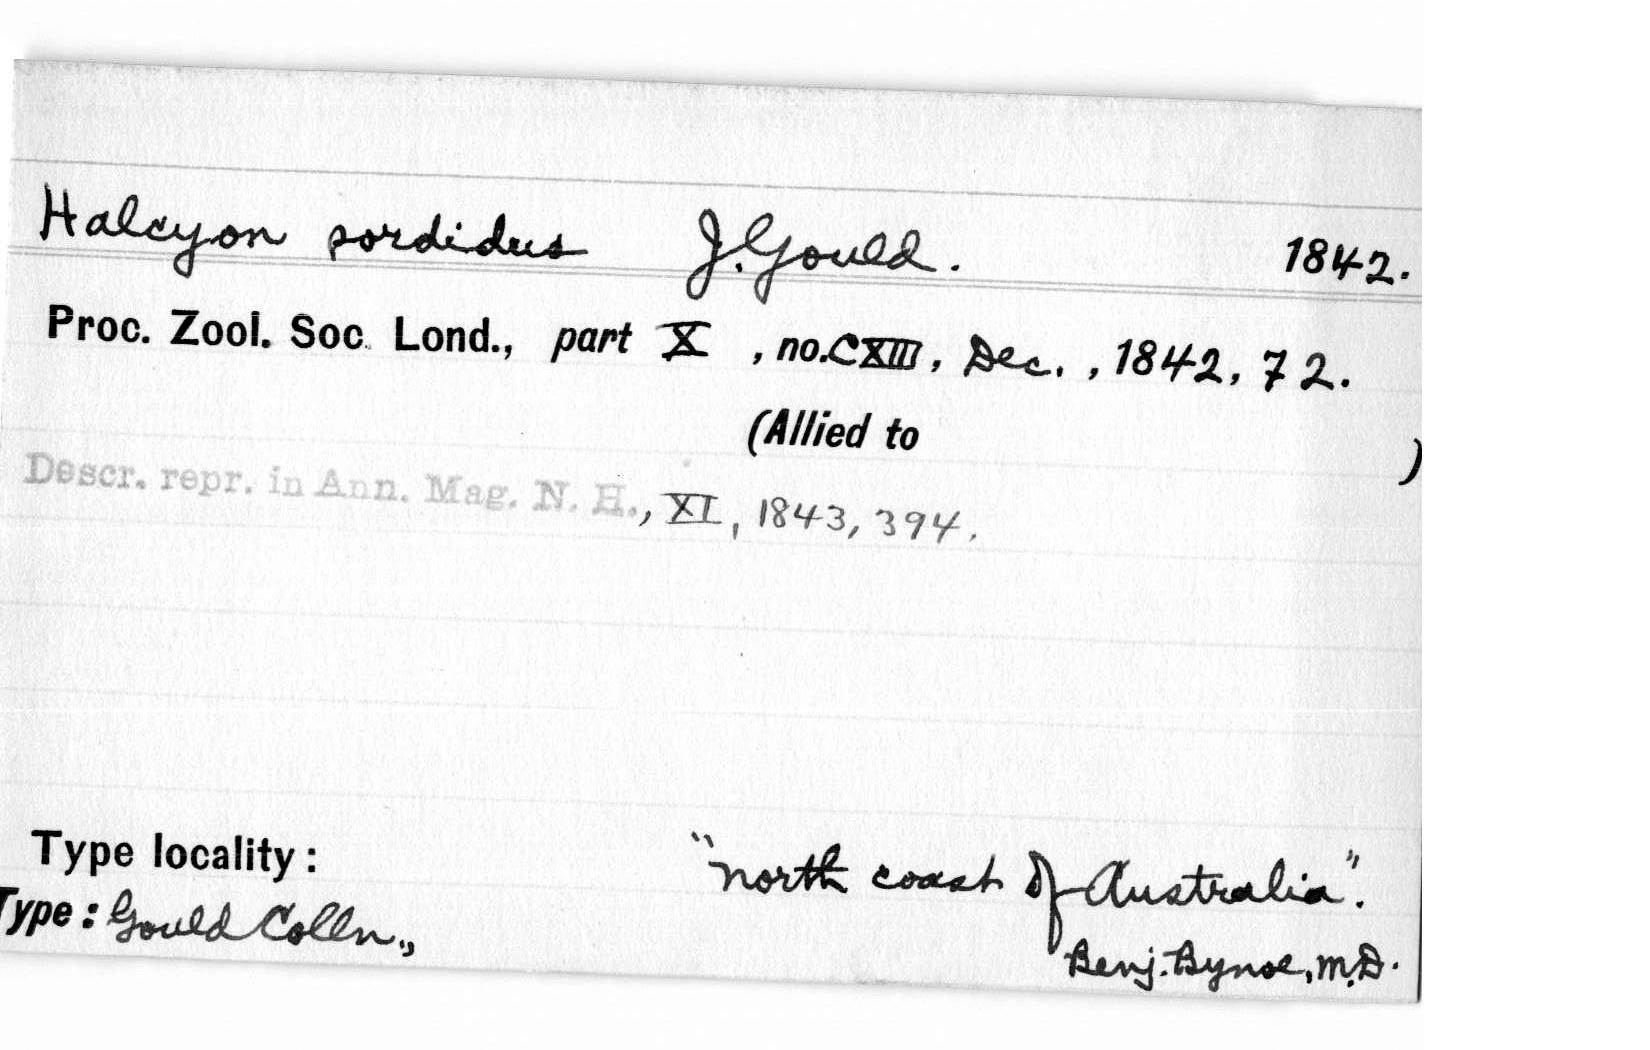 Halcyon sordidus J. Gould. 1842.
Proc. Zool. Soc. Lond., part X, no. CXIII, Dec., 1842, 72.
(Allied to )
Descr. repr. in Ann. Mag. N. H., XI, 1843, 394.
Type locality: "north coast of Australia".
Type: Gould Colln., Benj. Bynoe, M.D.